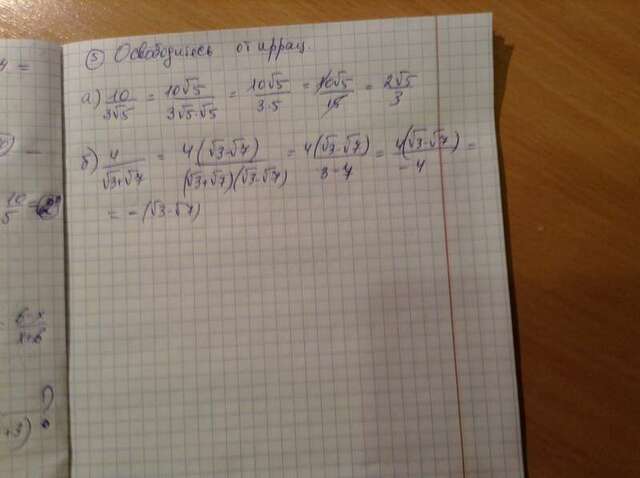 ⑤ Освободитесь от иррац.
а) 10/3√5 = 10√5/3√5·√5 = 10√5/3·5 = 10√5/15 = 2√5/3
б) 4/√3+√7 = 4(√3-√7)/(√3+√7)(√3-√7) = 4(√3-√7)/3-7 = 4(√3-√7)/-4 =
= -(√3-√7)
4 =
10/5 =
6-x/x+6
+3)